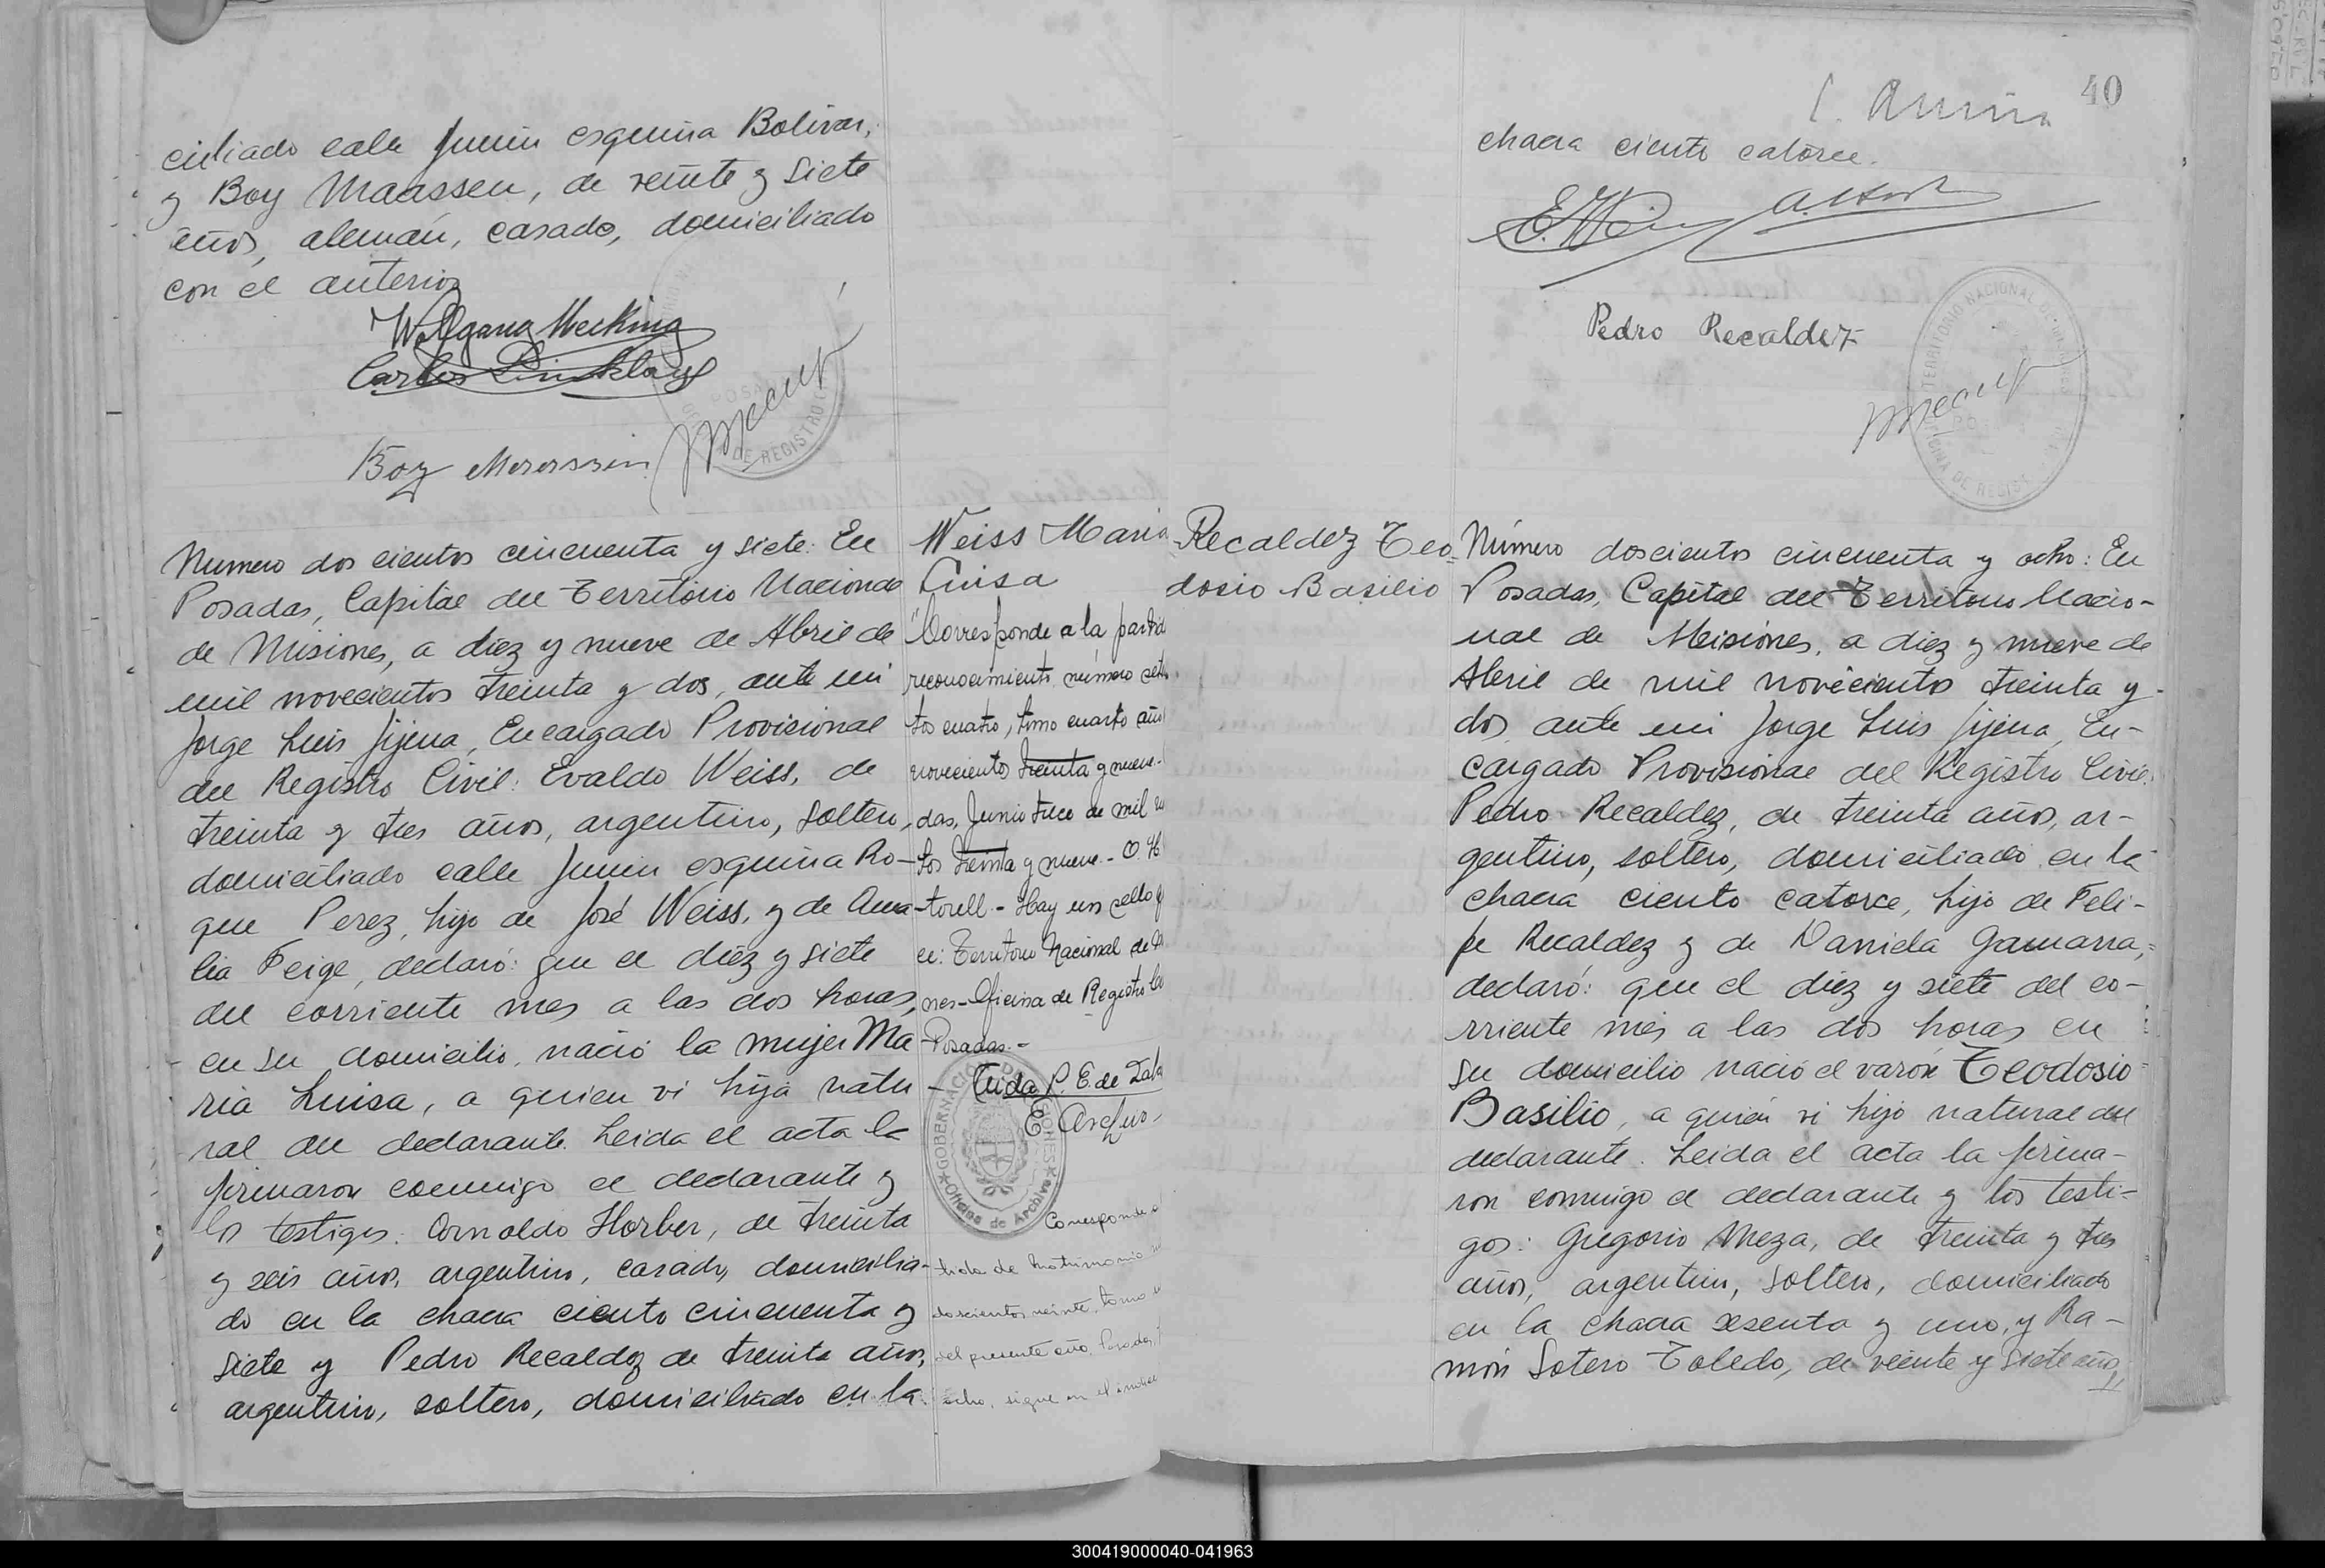 ciliado calle Junin esquina Bolivar,
y Boy Maassen, de veinte y siete
años, alemán, casado, domiciliado
con el anterior
Wolfgang Mecking
Carlos
Boy Maassen
POSADAS
DE REGISTRO
Numero dos cientos cincuenta y siete: En
Posadas, Capital del Territorio Nacional
de Misiones, a diez y nueve de Abril de
mil novecientos treinta y dos, ante mi
Jorge Luis Jijena, Encargado Provisional
del Registro Civil: Evaldo Weiss, de
treinta y tres años, argentino, soltero,
domiciliado calle Junin esquina Ro-
que Perez, hijo de José Weiss, y de Ama-
lia Feige, declaró: que el diez y siete
del corriente mes a las dos horas,
en su domicilio, nació la mujer Ma
ria Luisa, a quien vi hija natu
ral del declarante. Leida el acta la
firmaron conmigo el declarante y
los testigos: Arnoldo Horber, de treinta
y seis años, argentino, casado, domicilia-
do en la chacra ciento cincuenta y
siete y Pedro Recaldez de treinta años,
argentino, soltero, domiciliado en la
Weiss Maria
Luisa
Corresponde a la partid
reconocimiento número
tos cuatro, tomo cuarto año
novecientos treinta y nueve.-
das, Junio trece de mil
tos treinta y nueve.- O. H
torell - Hay un sello q
ce: Territorio Nacional de
nes - Oficina de Registro
Posadas.-
P. E. de
GOBERNACION DE MISIONES
Oficina de Archivo
Corresponde a
tida de Matrimonio
doscientos veinte, tomo
del presente año. Posadas,
ocho, sigue en el
40
chacra ciento catorce.
E. Weiss
Pedro Recaldez
TERRITORIO NACIONAL DE MISIONES
OFICINA DE REGISTRO
Recaldez Teo-
dosio Basilio
Número doscientos cincuenta y ocho: En
Posadas, Capital del Territorio Nacio-
nal de Misiones, a diez y nueve de
Abril de mil novecientos treinta y
dos, ante mi Jorge Luis Jijena, En-
cargado Provisional del Registro Civil:
Pedro Recaldez, de treinta años, ar-
gentino, soltero, domiciliado en la
chacra ciento catorce, hijo de Feli-
pe Recaldez y de Daniela Gamarra,
declaró: que el diez y siete del co-
rriente mes a las dos horas en
su domicilio nació el varón Teodosio
Basilio, a quien vi hijo natural del
declarante. Leida el acta la firma-
ron conmigo el declarante y los testi-
gos: Gregorio Meza, de treinta y tres
años, argentino, soltero, domiciliado
en la chacra sesenta y uno, y Ra-
món Sotero Toledo, de veinte y siete años
300419000040-041963